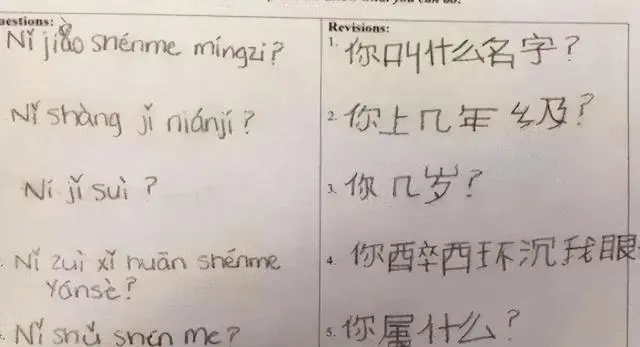 uestions:
Nǐ jiào shénme míngzi?
Nǐ shàng jǐ niánjí?
Nǐ jǐ suì?
Nǐ zuì xǐ huān shénme
Yánsè?
Nǐ shǔ shén me?
Revisions:
1. 你叫什么名字?
2. 你上几年级?
3. 你几岁?
4. 你醉西环沉我眼
5. 你属什么?